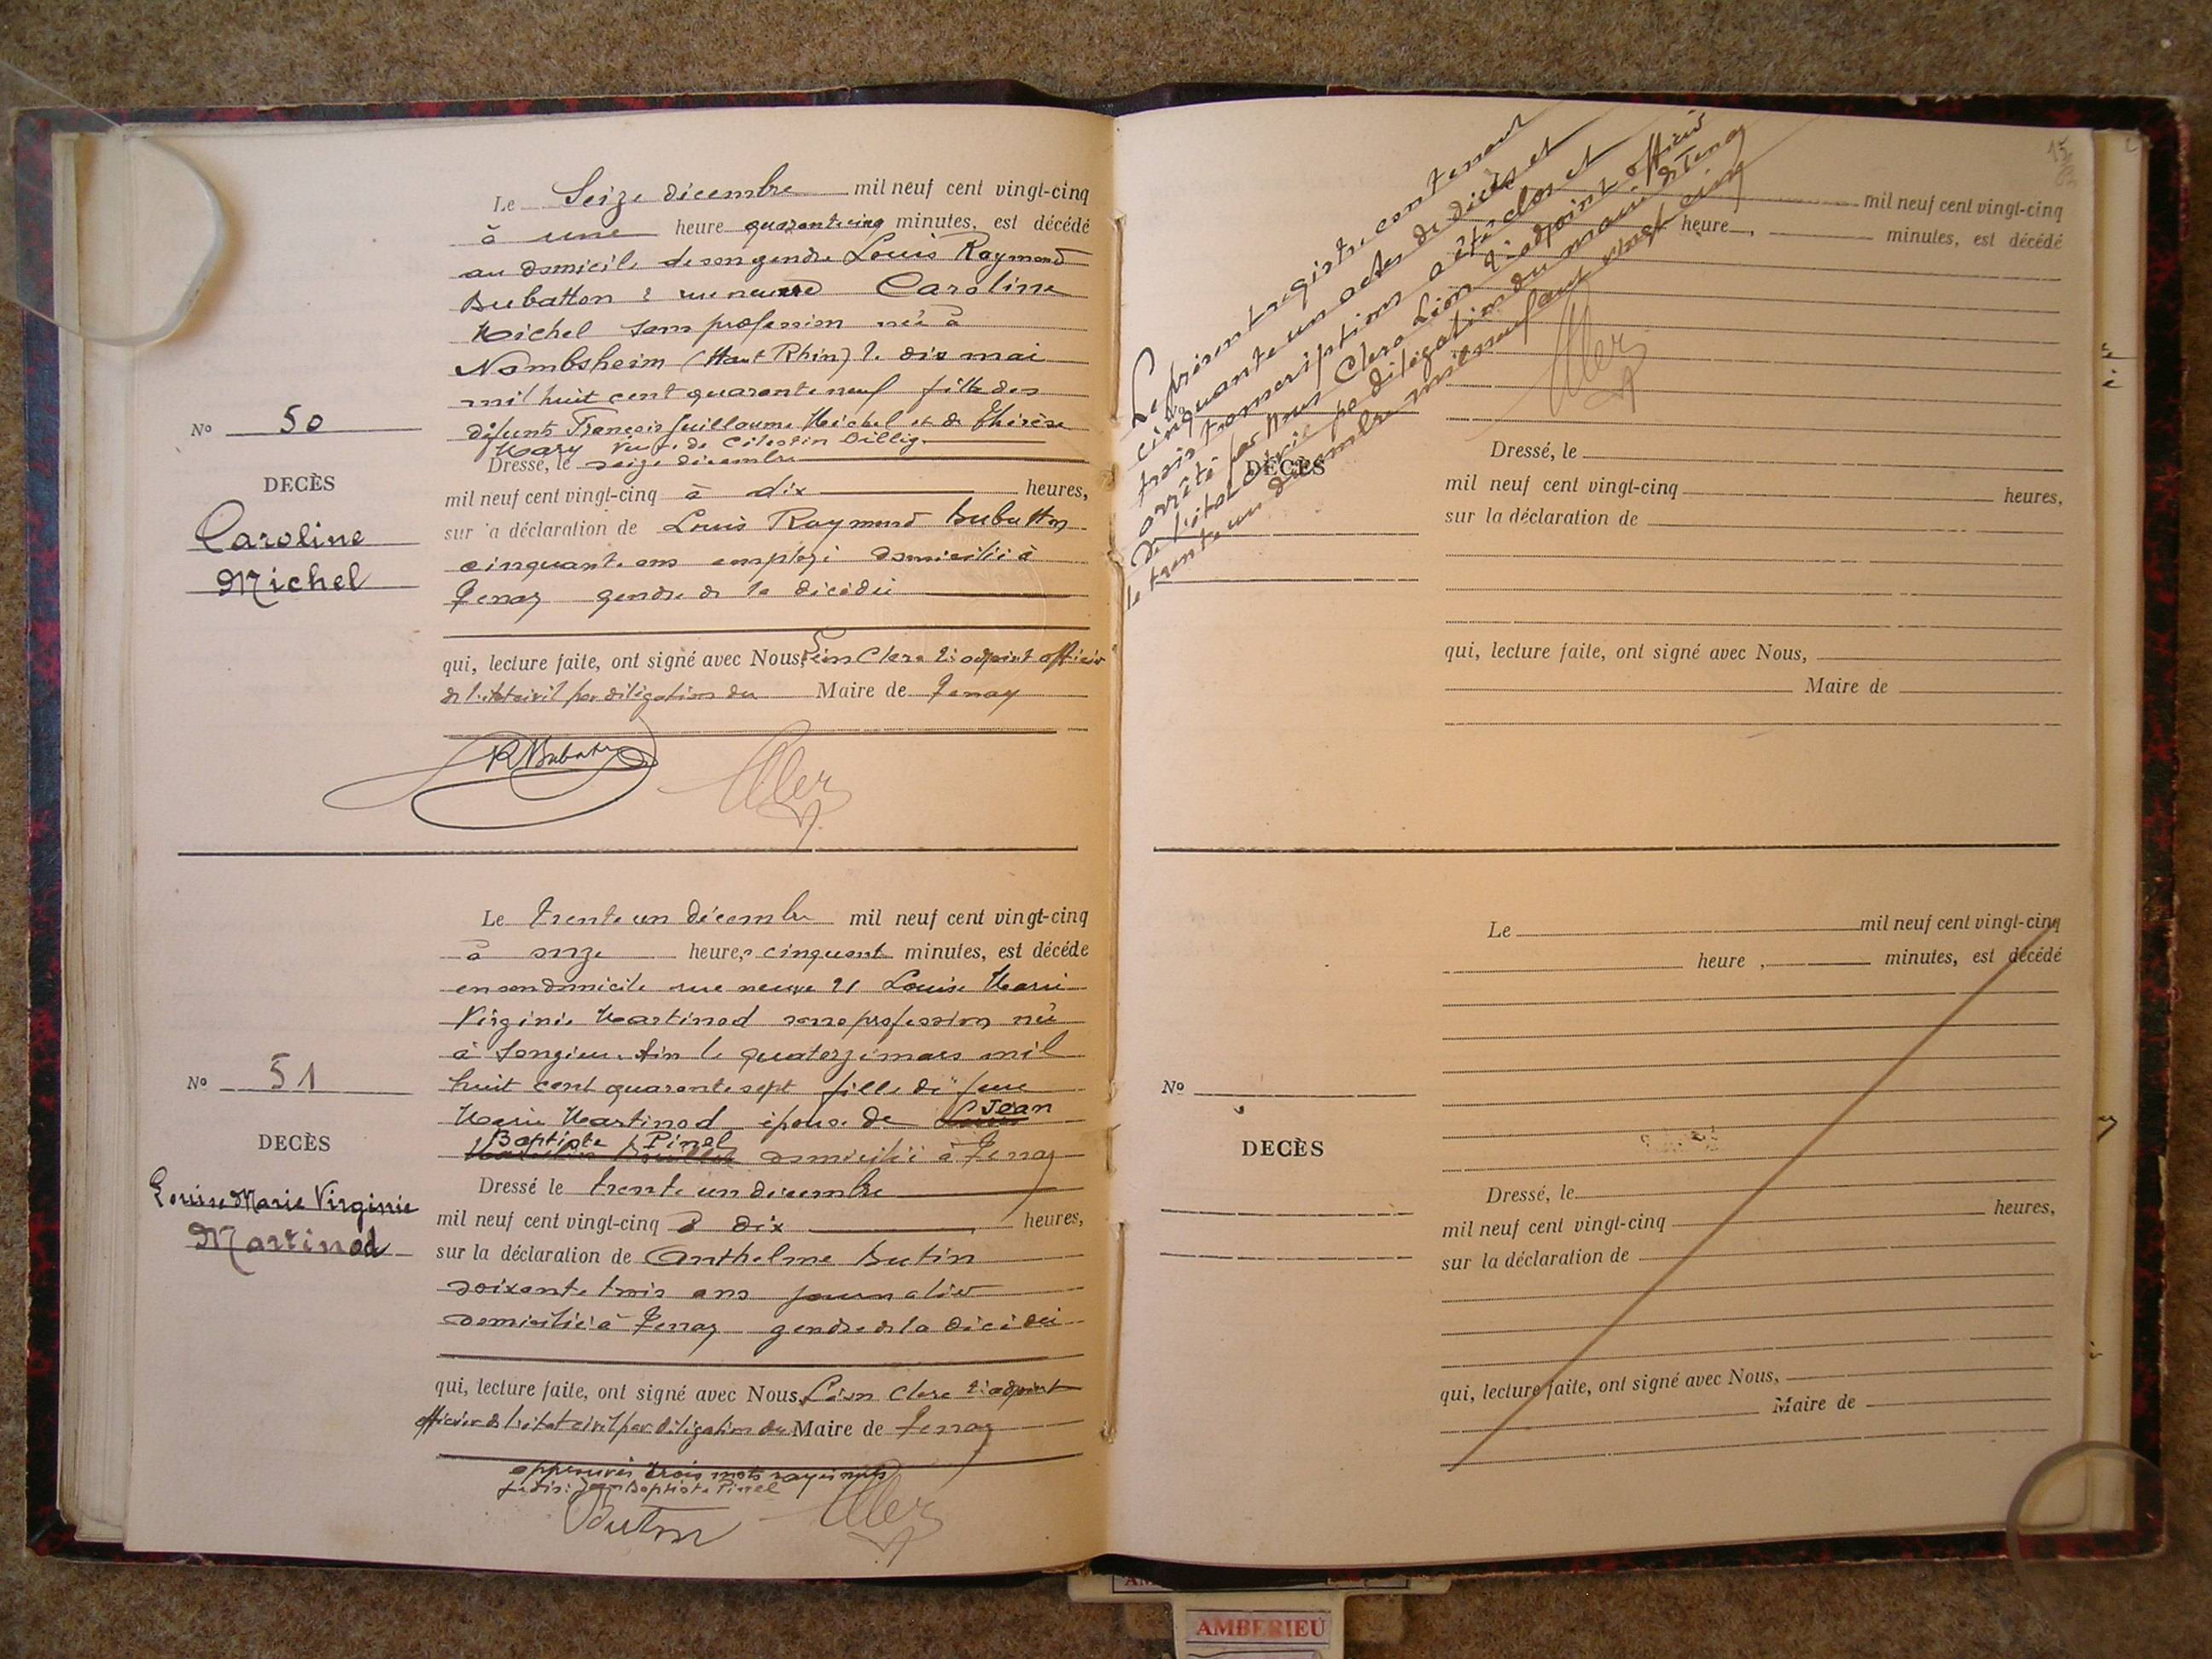 Le Seize décembre mil neuf cent vingt-cinq
à une heure quarante cinq minutes, est décédé
au domicile de son gendre Louis Raymond
Dubatton rue neuve Caroline
Michel sans profession née à
Nambsheim (Haut Rhin) le dix mai
mil huit cent quarante neuf fille des
défunts François Guillaume Michel et de Thérèse
Mary Vve de Célestin Billig
No 50
DECÈS
Caroline
Michel
Dressé, le seize décembre
mil neuf cent vingt-cinq à dix heures,
sur la déclaration de Louis Raymond Dubatton
cinquante ans employé domicilié à
Tenay gendre de la décédée
qui, lecture faite, ont signé avec Nous, Léon Clerc 2e adjoint officier
de l'état civil par délégation du Maire de Tenay
Le trente un décembre mil neuf cent vingt-cinq
à onze heures cinquante minutes, est décédé
en son domicile rue neuve 21 Louise Marie
Virginie Martinod sans profession née
à Songieu Ain le quatorze mars mil
huit cent quarante sept fille de feue
Marie Martinod épouse de Jean
Baptiste Pinel domicilié à Tenay
No 51
DECÈS
Louise Marie Virginie
Martinod
Dressé le trente un décembre
mil neuf cent vingt-cinq à dix heures,
sur la déclaration de Anthelme Butin
soixante trois ans journalier
domicilié à Tenay gendre de la décédée
qui, lecture faite, ont signé avec Nous, Léon Clerc 2e adjoint
officier de l'état civil par délégation du Maire de Tenay
approuvés trois mots rayés nuls
Jean Baptiste Pinel
Butin
Le présent registre contenant
cinquante un actes de décès et
trois transcriptions a été clos et
arrêté par Nous Clerc Léon 2e adjoint officier
de l'état civil par délégation du maire de Tenay
le trente un décembre mil neuf cent vingt cinq
mil neuf cent vingt-cinq
heure , minutes, est décédé
DÉCÈS
Dressé, le
mil neuf cent vingt-cinq heures,
sur la déclaration de
qui, lecture faite, ont signé avec Nous,
Maire de
Le mil neuf cent vingt-cinq
heure , minutes, est décédé
No
DECÈS
Dressé, le
mil neuf cent vingt-cinq heures,
sur la déclaration de
qui, lecture faite, ont signé avec Nous,
Maire de
AMBERIEU